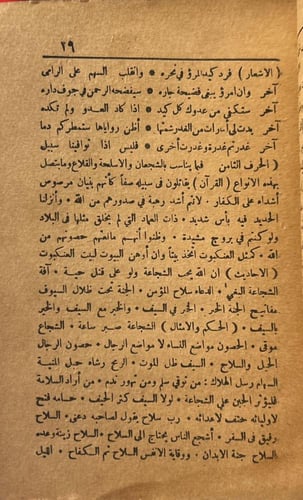 ٢٩
(الاشعار) فرد كيد المرؤ في نحره * وانقلب السهم على الرامى
آخر وان امرؤ يبغى فضيحة جاره * سيفضحه الرحمن في جوف داره
آخر ستكفى من عدوك كل كيد * اذا كاد العدو ولم تكده
آخر بدت لى أمارات من الغدر شمتها * أظن رواياها ستمطركم دما
آخر غدرتم غدرة وغدرت أخرى * فليس اذا توافينا سبيل
(الحرف الثامن فيما يناسب بالشجعان والاسلحة والقلاع وما يتصل
بهذه الانواع (القرآن) يقاتلون فى سبيله صفا كأنهم بنيان مرصوص
أشداء على الكفار * لانتم أشد رهبة فى صدورهم من الله * وأنزلنا
الحديد فيه بأس شديد * ذات العماد التى لم يخلق مثلها فى البلاد
ولو كنتم فى بروج مشيدة * وظنوا أنهم مانعتهم حصونهم من
الله * كمثل العنكبوت اتخذت بيتا وان أوهن البيوت لبيت العنكبوت
(الاحاديث) ان الله يحب الشجاعة ولو على قتل حية * آفة
الشجاعة البغى * الدعاء سلاح المؤمن * الجنة تحت ظلال السيوف
مفاتيح الجنة * الخير فى السيف * والخير مع السيف والخير
بالسيف * (الحكم والامثال) الشجاعة صبر ساعة * الشجاع
موقى * الحصون مواضع النساء لا مواضع الرجال * حصون الرجال
الخيل والسلاح * السيف ظل الموت * الرمح رشاء حبل المنية
السهام رسل الهلاك * من توقى سلم ومن تهور ندم * من أراد السلامة
فليؤثر الجبن على الشجاعة * لولا السيف كثر الحيف * حسامه فتح
لاوليائه حتف لاعدائه * رب سلاح يقول لصاحبه دعنى * السلاح
رفيق فى السفر * أشجع الناس يحتاج الى السلاح * السلاح زينة وعده
السلاح جنة الابدان * ووقاية الانفس السلاح ثم الكفاح * أقبل